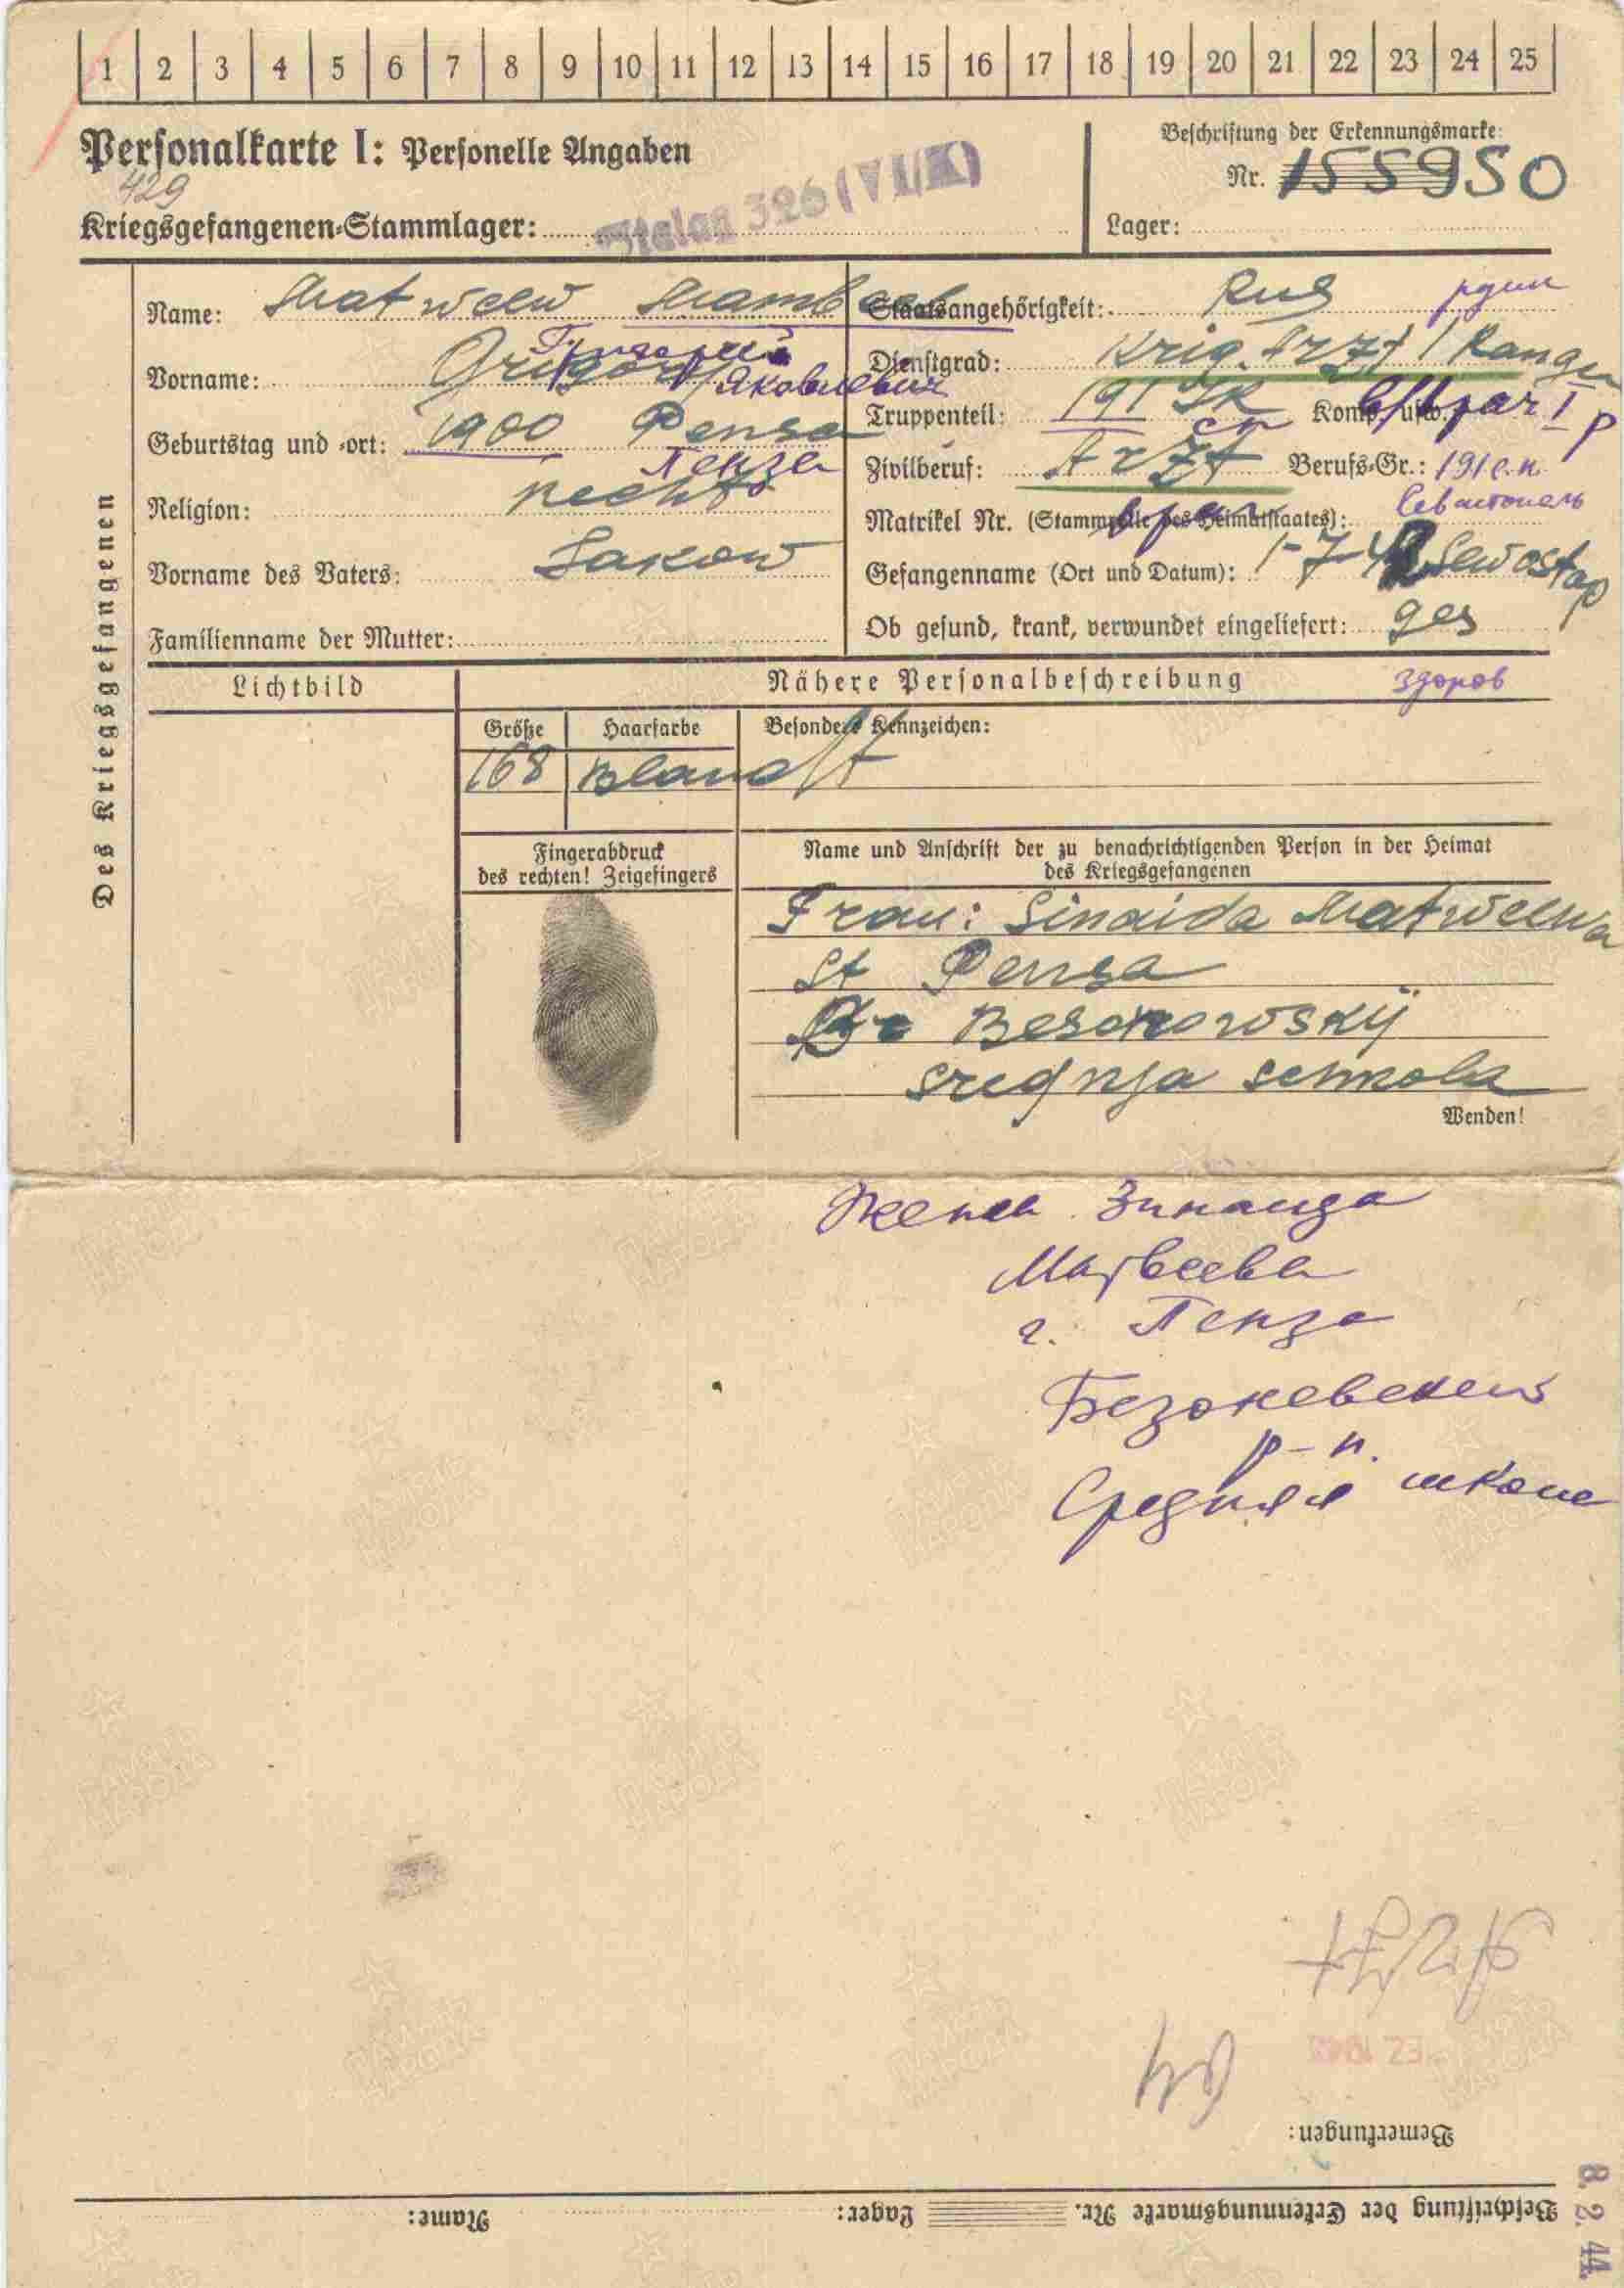 1 2 3 4 5 6 7 8 9 10 11 12 13 14 15 16 17 18 19 20 21 22 23 24 25
Personalkarte I: Personelle Angaben
Beschriftung der Erkennungsmarke:
Nr. 155950
429
Kriegsgefangenen-Stammlager: Stalag 326 (VI/K)
Lager:
Des Kriegsgefangenen
Name: Matweew
Staatsangehörigkeit: Rus
Григорий
Vorname: Grigory Яковлевич
Dienstgrad: Krig. Arzt I Rangu
Truppenteil: 191 IR Komp. usw.:
Geburtstag und -ort: 1900 Pensa
Пенза
Zivilberuf: Arzt Berufs-Gr.: 191 с.п.
врач
Религion: nechts
Севастополь
Matrikel Nr. (Stammrolle des Heimatstaates):
Vorname des Vaters: Jakow
Gefangenname (Ort und Datum): 1-7-42 Sewostap
Familienname der Mutter:
Ob gesund, krank, verwundet eingeliefert: ges
здоров
Lichtbild
Nähere Personalbeschreibung
Größe
Haarfarbe
Besondere Kennzeichen:
168
Blandt
Fingerabdruck
des rechten! Zeigefingers
Name und Anschrift der zu benachrichtigenden Person in der Heimat
des Kriegsgefangenen
Frau: Sinaida Matweewa
St Pensa
Besonowskij
srednja schkola
Wenden!
Жена Зинаида
Матвеева
г. Пенза
р-н.
Средняя школа
Bemerkungen:
Beschriftung der Erkennungsmarke Nr.
Lager:
Name:
8. 2. 44.